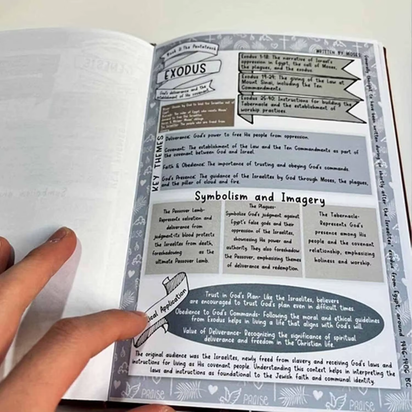 Week 2: The Pentateuch
WRITTEN BY: MOSES
EXODUS
God's deliverance and the
establishment of His covenant
Exodus 1-18: The narrative of Israel's
oppression in Egypt, the call of Moses,
the plagues, and the exodus
Exodus 19-24: The giving of the Law at
Mount Sinai, including the Ten
Commandments.
Exodus 25-40: Instructions for building the
Tabernacle and the establishment of
worship practices.
KEY THEMES
Deliverance: God's power to free His people from oppression.
Covenant: The establishment of the Law and the Ten Commandments as part of
the covenant between God and Israel.
Faith & Obedience: The importance of trusting and obeying God's commands
God's Presence: The guidance of the Israelites by God through Moses, the plagues,
and the pillar of cloud and fire.
Symbolism and Imagery
The Passover Lamb-
Represents salvation and
deliverance from
judgment-its blood protects
the Israelites from death,
foreshadowing
the
ultimate Passover Lamb.
The Plagues-
Symbolize God's judgment against
Egypt's false gods and their
oppression of the Israelites,
showcasing His power and
authority. They also foreshadow
the Passover, emphasizing themes
of deliverance and redemption.
The Tabernacle-
Represents God's
presence among His
people and the covenant
relationship, emphasizing
holiness and worship
Application
Trust in God's Plan- Like the Israelites, believers
are encouraged to trust God's plan even in difficult times.
Obedience to God's Commands- Following the moral and ethical guidelines
from Exodus helps in living a life that aligns with God's will.
Value of Deliverance- Recognizing the significance of spiritual
deliverance and freedom in the Christian life.
The original audience was the Israelites, newly freed from slavery and receiving God's laws and
instructions for living as His covenant people. Understanding this context helps in interpreting the
laws and instructions as foundational to the Jewish faith and communal identity.
PRAISE
PRAISE